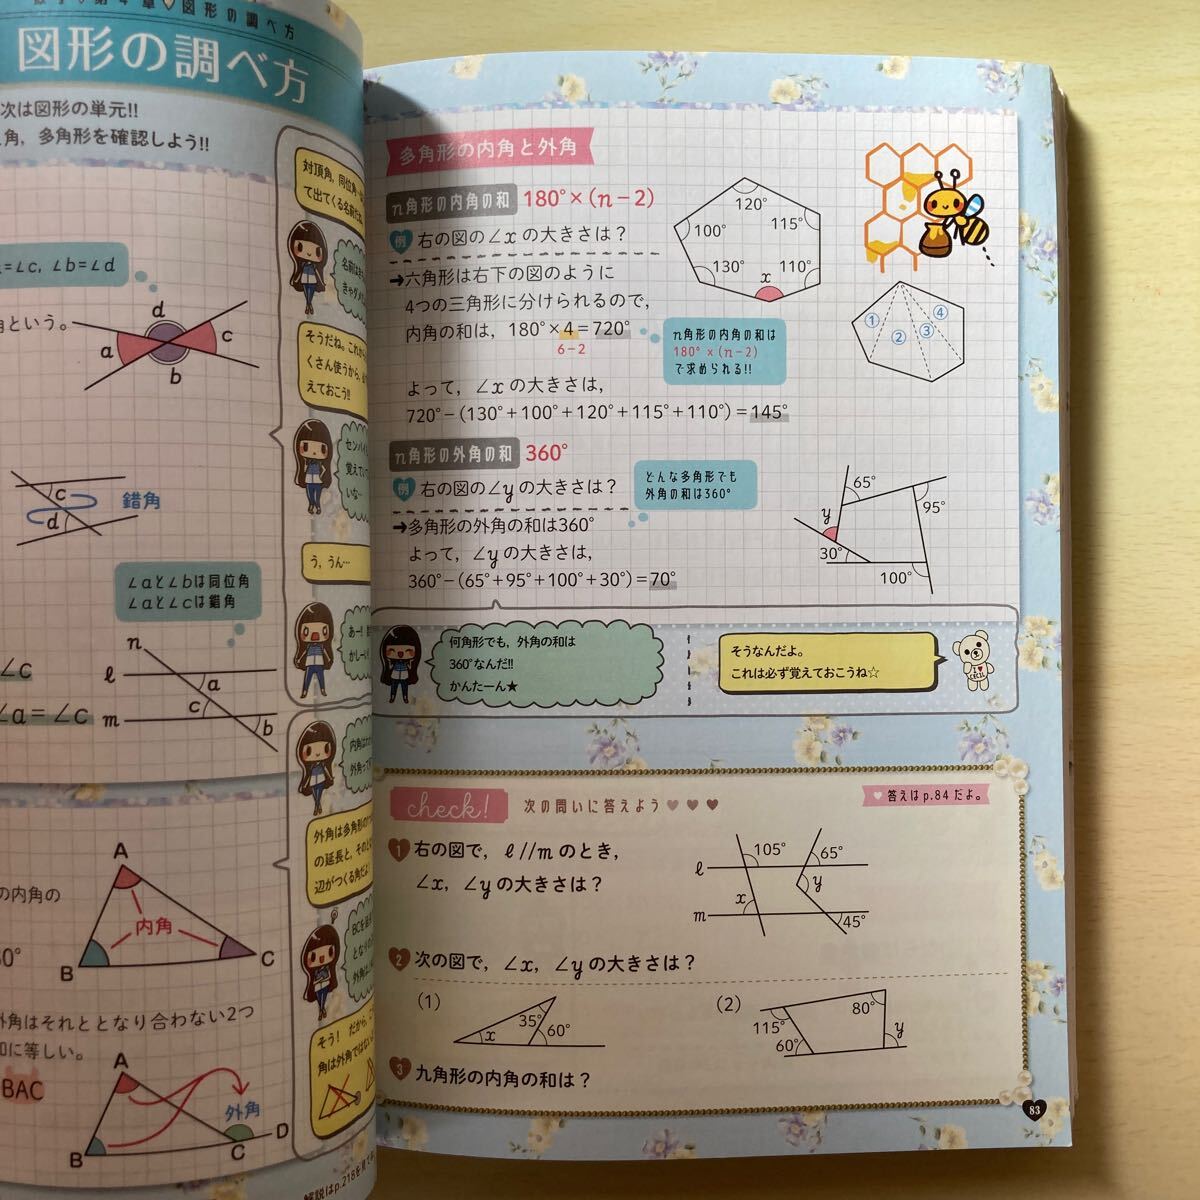 図形の調べ方
次は図形の単元!!
角, 多角形を確認しよう!!
=∠c, ∠b=∠d
角という。
a
d
c
b
c
d
錯角
∠aと∠bは同位角
∠aと∠cは錯角
n
ℓ
m
a
c
b
∠c
∠a=∠c
の内角の
A
内角
B
C
外角はそれととなり合わない2つ
に等しい。
BAC
A
外角
B
C
D
対頂角, 同位角
て出てくる名前だね
そうだね。これか
くさん使うから,
えておこう!!
センパイ
覚えてい
いな…
う, うん…
外角は多角形の
の延長と, その
辺がつくる角だよ
そう! だから,
角は外角ではない
多角形の内角と外角
n角形の内角の和 180°×(n−2)
例 右の図の∠xの大きさは?
→六角形は右下の図のように
4つの三角形に分けられるので,
内角の和は, 180°×4=720°
6−2
よって, ∠xの大きさは,
720°−(130°+100°+120°+115°+110°)=145°
n角形の内角の和は
180°×(n−2)
で求められる!!
120°
100°
115°
130°
x
110°
①
②
③
④
n角形の外角の和 360°
例 右の図の∠yの大きさは?
→多角形の外角の和は360°
よって, ∠yの大きさは,
360°−(65°+95°+100°+30°)=70°
どんな多角形でも
外角の和は360°
65°
95°
y
30°
100°
何角形でも, 外角の和は
360°なんだ!!
かんたーん★
そうなんだよ。
これは必ず覚えておこうね☆
I♥
CECIL
check!
次の問いに答えよう♥♥♥
♥答えはp.84だよ。
1 右の図で, ℓ//mのとき,
∠x, ∠yの大きさは?
105°
65°
ℓ
x
y
m
45°
2 次の図で, ∠x, ∠yの大きさは?
(1)
35°
x
60°
(2)
80°
115°
60°
y
3 九角形の内角の和は?
83